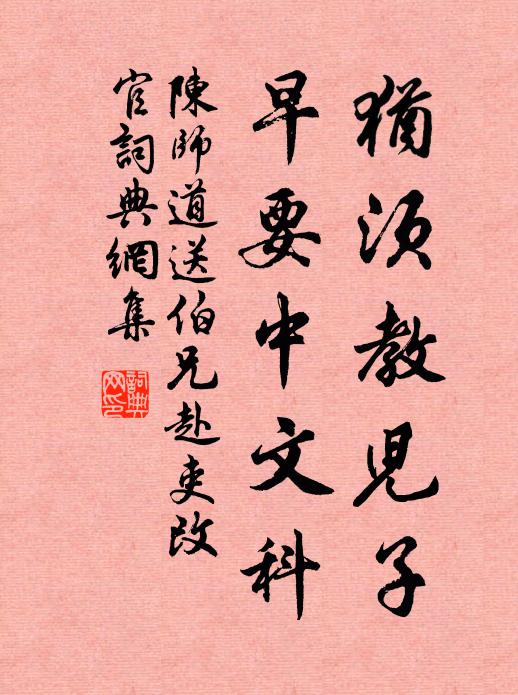 猶須教兒子
早要中文科
陳師道送伯兄赴吏改
官詞典網集
詞典網印